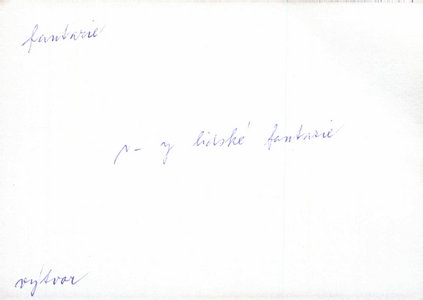 fantazie
v- y lidské fantazie
výtvor